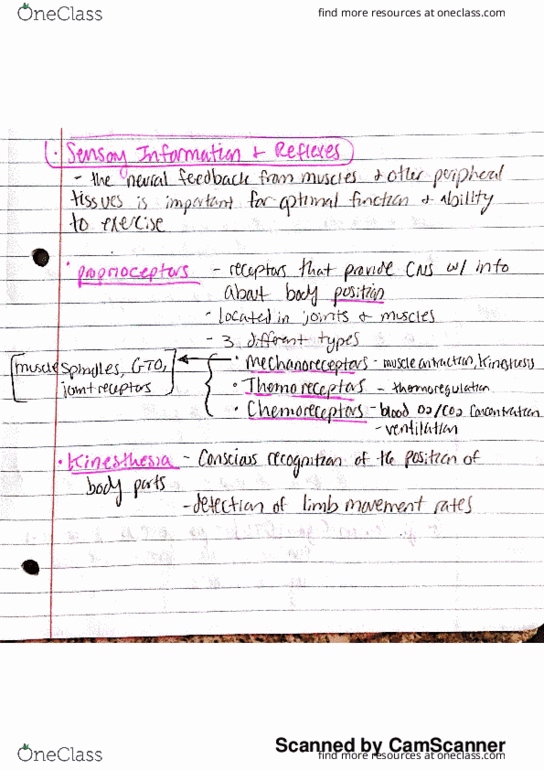 OneClass
find more resources at oneclass.com
1. Sensory Information + Reflexes
- the neural feedback from muscles + other peripheral
tissues is important for optimal function + ability
to exercise
• proprioceptors - receptors that provide CNS w/ info
about body position
- located in joints + muscles
- 3 different types
muscle spindles, GTO,
joint receptors
• Mechanoreceptors - muscle contraction, kinesthesis
• Thermoreceptors - thermoregulation
• Chemoreceptors - blood O2/CO2 concentration
- ventilation
• Kinesthesia - conscious recognition of the position of
body parts
- detection of limb movement rates
Scanned by CamScanner
OneClass
find more resources at oneclass.com